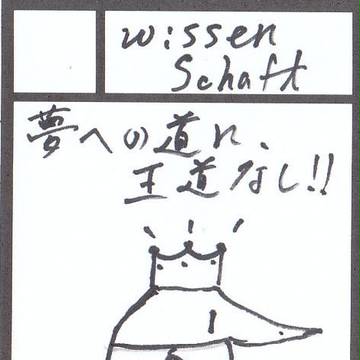 wissen
Schaft
夢への道に、
王道なし!!